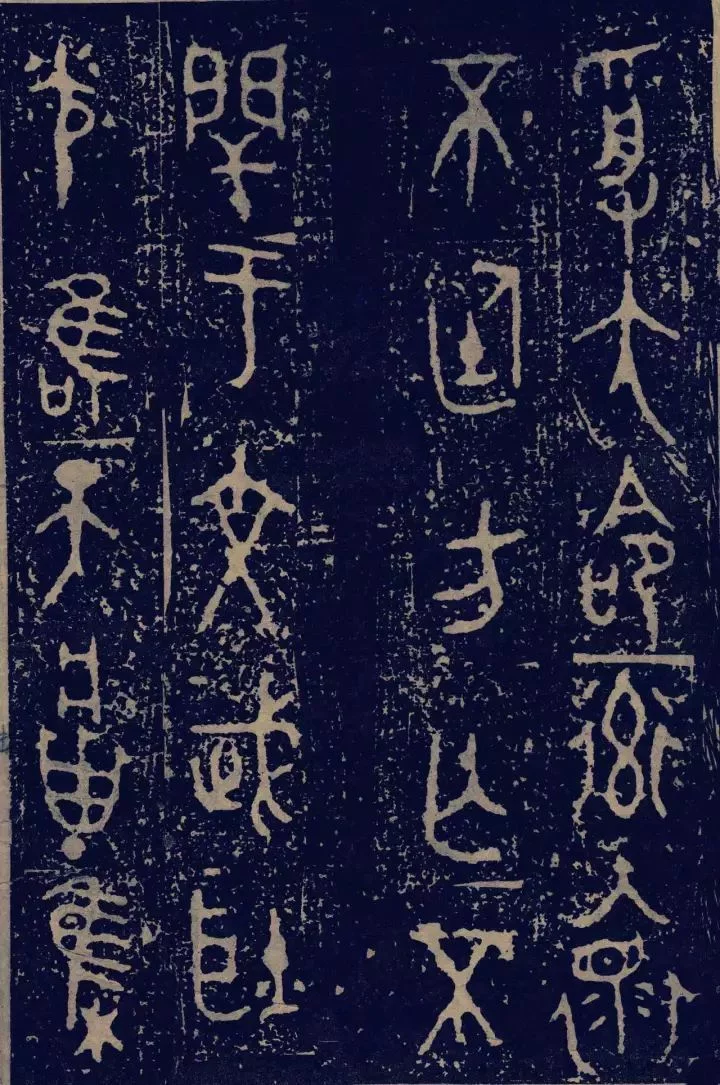 受大命率褱
不廷方亡不
閈于文武耿
光唯天將集